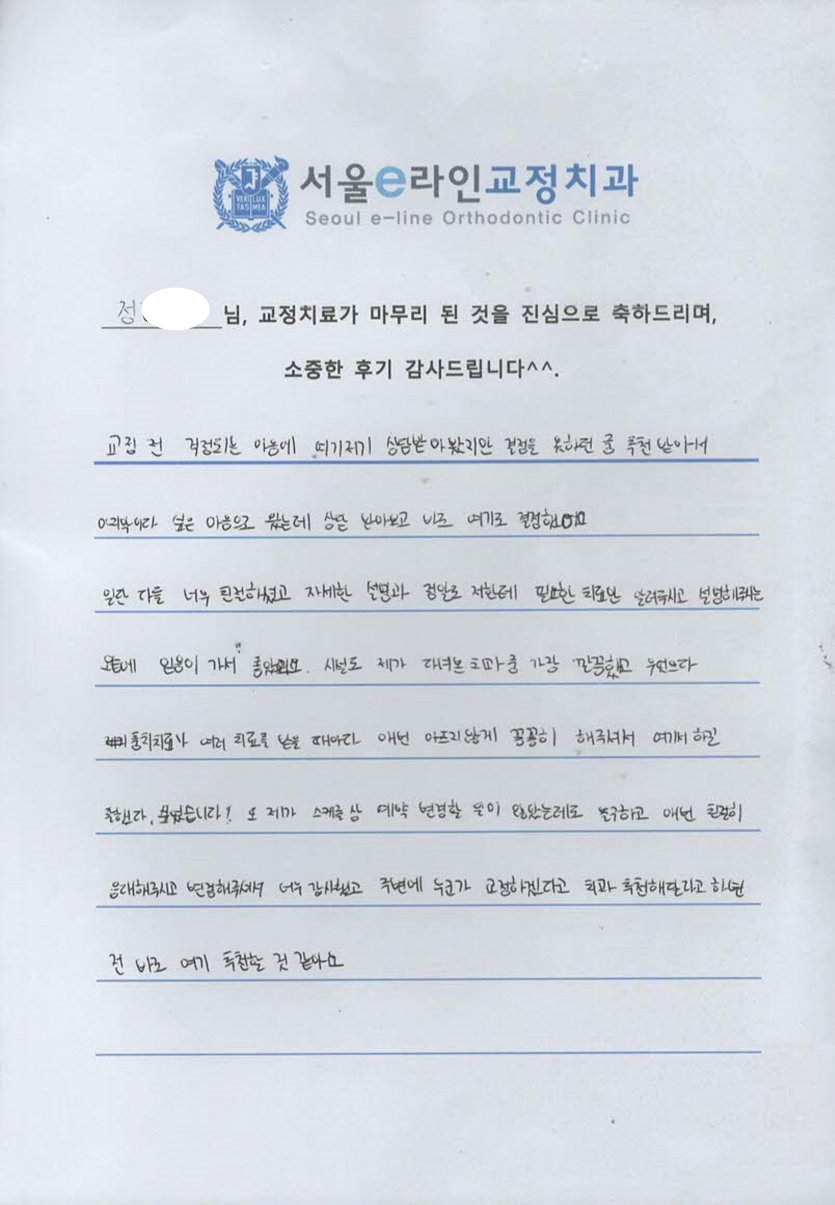 서울e라인교정치과
Seoul e-line Orthodontic Clinic
VERI LUX
TAS MEA
정 님, 교정치료가 마무리 된 것을 진심으로 축하드리며,
소중한 후기 감사드립니다^^.
교정 전 걱정되는 마음에 여기저기 상담받아봤지만 결정을 못하던 중 추천 받아서
마지막이다 싶은 마음으로 왔는데 상담 받아보고 바로 여기로 결정했어요
일단 다들 너무 친절하셨고 자세한 설명과 정말로 저한테 필요한 치료만 알려주시고 설명해주시는
믿음이 가서 좋았어요. 시설도 제가 다녀본 치과 중 가장 깔끔했고 무엇보다
충치치료나 여러 치료를 받을 때마다 매번 아프지않게 꼼꼼히 해주셔서 여기서 하길
잘했다, 싶었습니다! 또 제가 스케줄상 예약 변경할 일이 많았는데도 불구하고 매번 친절히
응대해주시고 변경해주셔서 너무 감사했고 주변에 누군가 교정하겠다고 치과 추천해달라고 하면
전 바로 여기 추천할 것 같아요